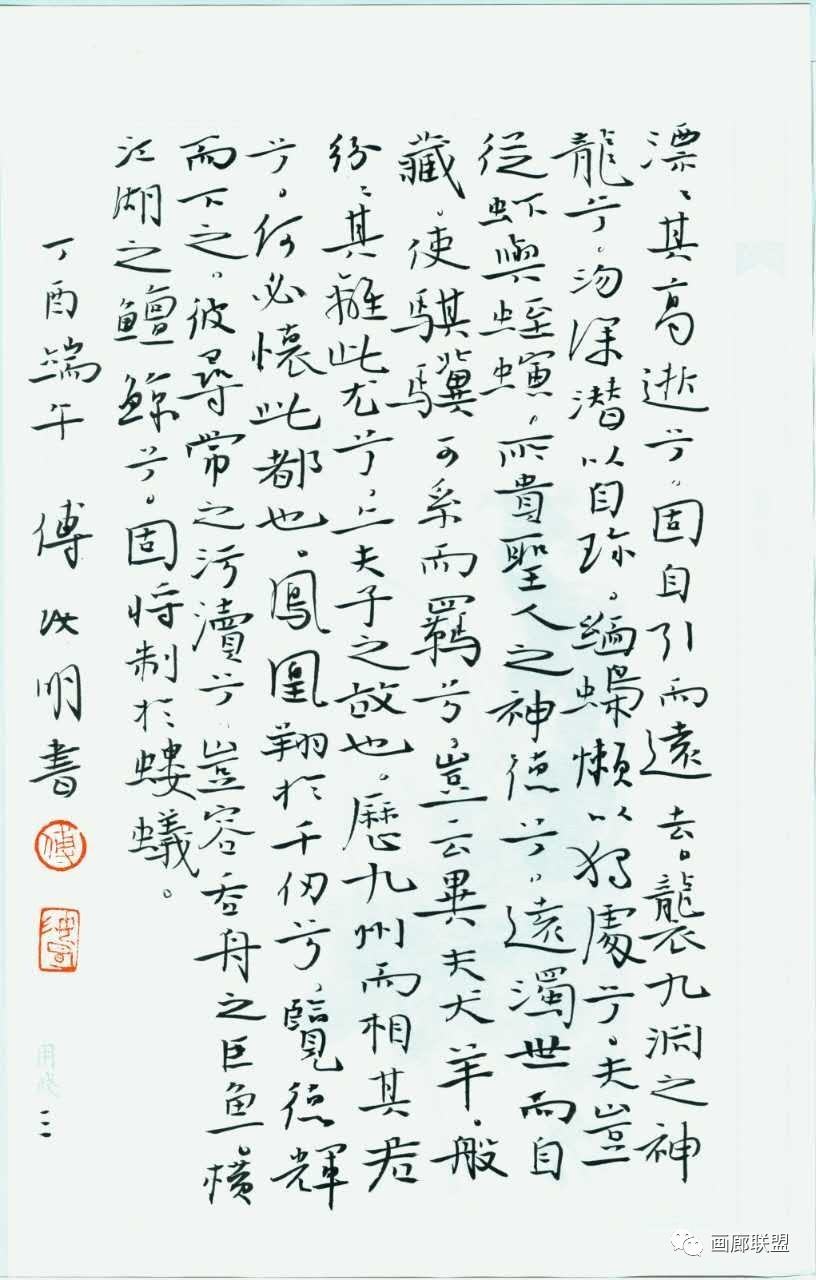 漂〻其高逝兮。固自引而遠去。襲九渊之神
龍兮。沕深潜以自珎。缅蟂懶以處兮。夫豈
從虾與蛭螾。所貴聖人之神德兮。遠濁世而自
藏。使騏驥可系而羈兮。豈云異夫犬羊。般
紛〻其離此尤兮。亦夫子之故也。歷九州而相其君
兮。何必懷此都也。鳳凰翔於千仞兮。覽德輝
而下之。彼尋常之污瀆兮。豈容吞舟之巨鱼。横
江湖之鱣鯨兮。固将制於螻蟻。
丁酉端午 傅明書
傅
用笺
三
画廊联盟